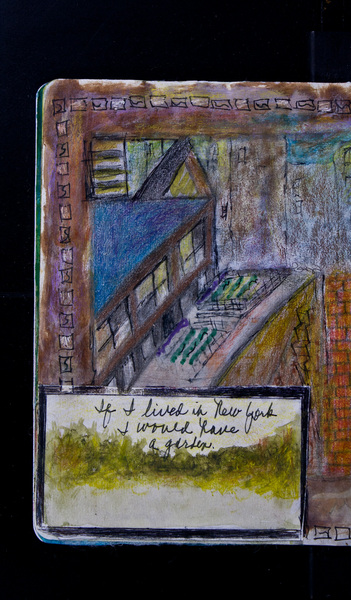 If I lived in New York
I would have
a garden.